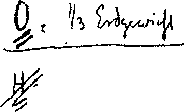 O = 1/3 Erdgewicht